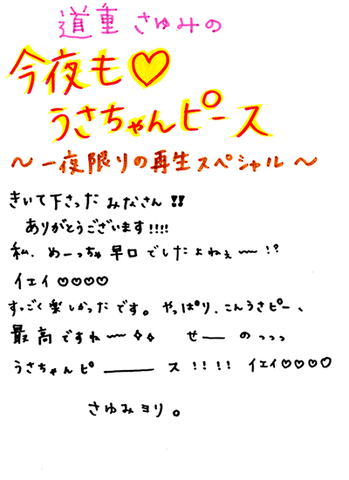 道重さゆみの
今夜も♡
うさちゃんピース
〜一夜限りの再生スペシャル〜
きいて下さった みなさん!!
ありがとうございます!!!!
私、めーっちゃ早口でしたよねぇ〜!?
イエイ♡♡♡♡
すっごく楽しかったです。やっぱり、こんうさピー、
最高ですね〜✧✧ せーのっっっ
うさちゃんピ――ス!!!! イエイ♡♡♡♡
さゆみヨリ。